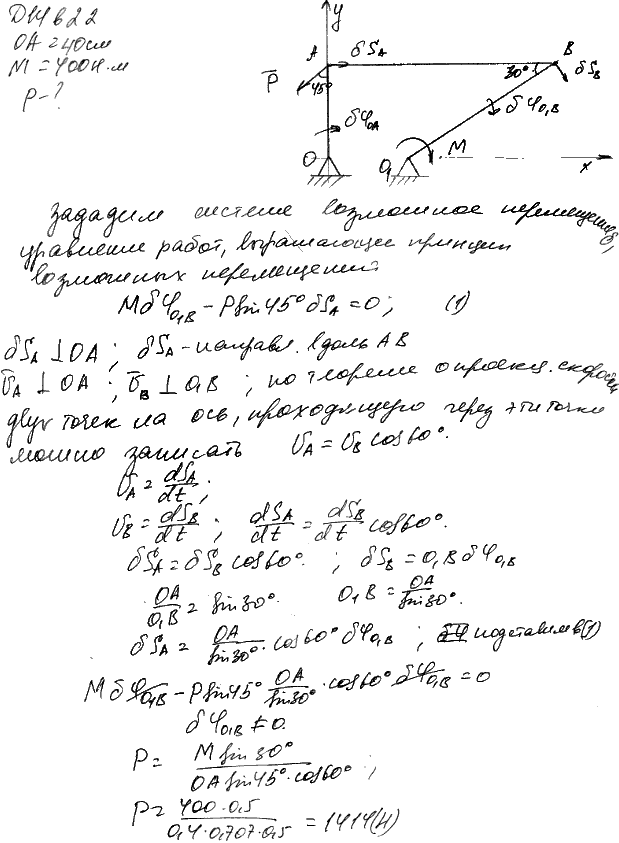 D14 в 22
OA = 40 см
M = 400 Н·м
P - ?
y
A
δS_A
B
P̄
45°
30°
δS_B
δφ_OA
δφ_O₁B
O
O₁
M
x
Зададим системе возможное перемещение,
уравнение работ, выражающее принцип
возможных перемещений
Mδφ_O₁B - P sin45° δS_A = 0; (1)
δS_A ⊥ OA; δS_A - направл. вдоль AB
ῡ_A ⊥ OA; ῡ_B ⊥ O₁B; по теореме о проекц. скорости
двух точек на ось, проходящую через эти точки
можно записать υ_A = υ_B cos60°.
υ_A = dS_A/dt;
υ_B = dS_B/dt; dS_A/dt = dS_B/dt cos60°.
δS_A = δS_B cos60°; δS_B = O₁B δφ_O₁B
OA/O₁B = sin30°. O₁B = OA/sin30°.
δS_A = OA/sin30° · cos60° δφ_O₁B; подставим в (1)
Mδφ_O₁B - P sin45° OA/sin30° · cos60° δφ_O₁B = 0
δφ_O₁B ≠ 0.
P = M sin30°/OA sin45° · cos60°;
P = 400·0,5/0,4·0,707·0,5 = 1414 (Н)